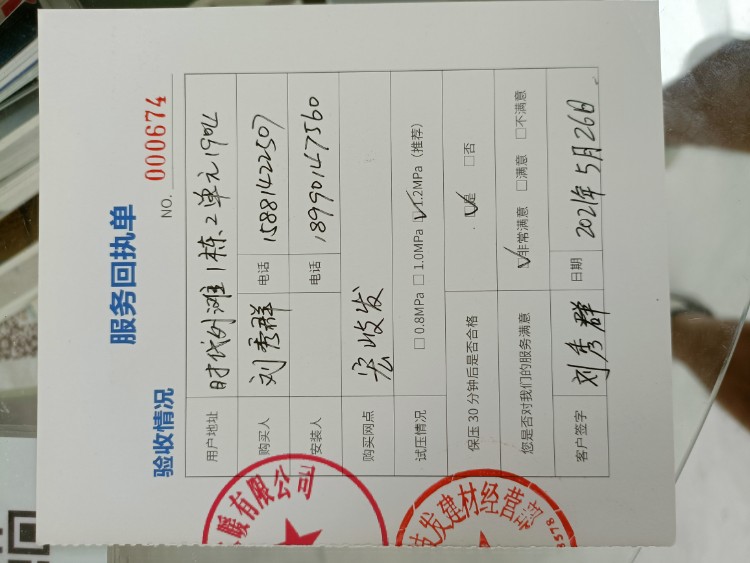 服务回执单
验收情况
NO. 000674
用户地址 时代外滩1栋、2单元1902
购买人 刘秀群 电话 15881422507
安装人 电话 18990147560
购买网点 宏岐发
试压情况 □ 0.8MPa □ 1.0MPa ☑ 1.2MPa（推荐）
保压 30 分钟后是否合格 ☑是 □否
您是否对我们的服务满意 ☑非常满意 □满意 □不满意
客户签字 刘秀群 日期 2021年5月26日
暖有限公司
发建材经营部
8578